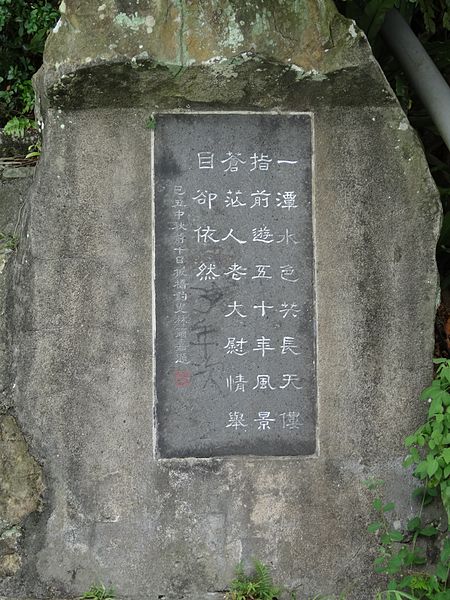 一潭水色共長天僂
指前遊五十年風景
蒼茫人老大慰情舉
目卻依然
己丑中秋前十日